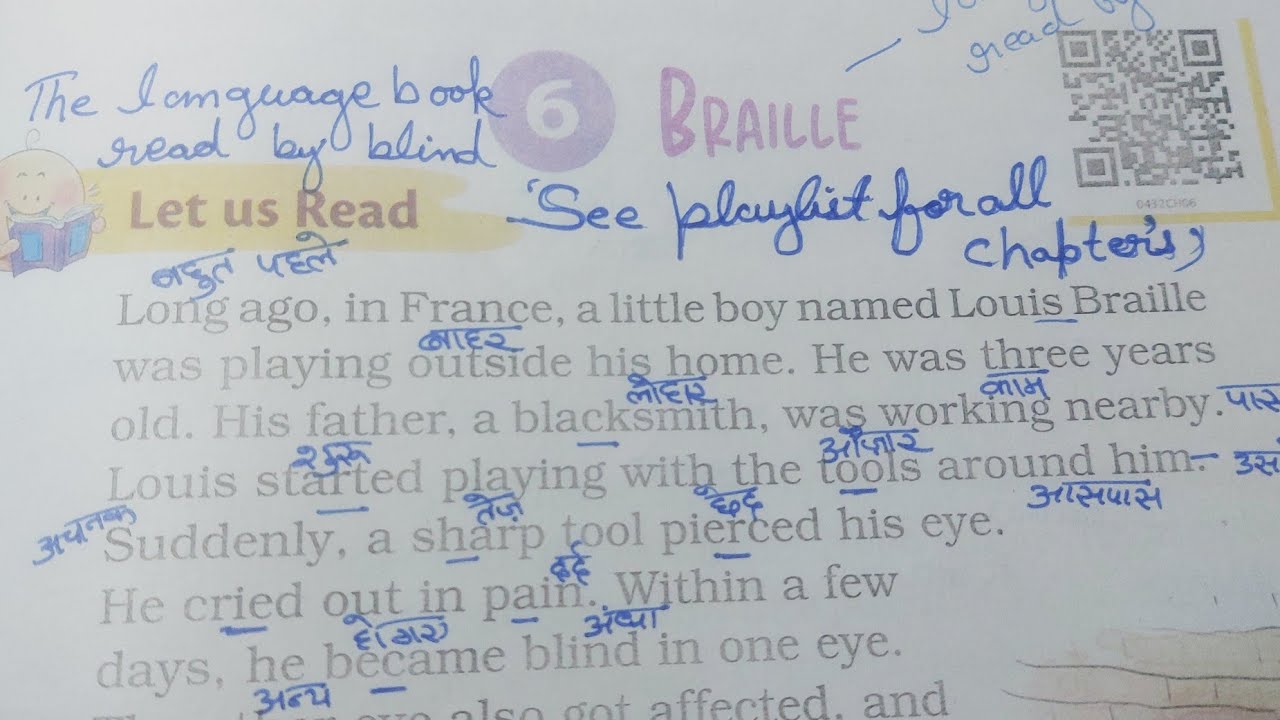 The language book
read by blind
6 BRAILLE
read by
Let us Read
'See playlist for all
chapter's,
0432CH06
बहुत पहले
Long ago, in France, a little boy named Louis Braille
बाहर
was playing outside his home. He was three years
लोहार काम
old. His father, a blacksmith, was working nearby. पास
शुरू औजार
Louis started playing with the tools around him. उस
अचानक तेज़ छेद आसपास
Suddenly, a sharp tool pierced his eye.
दर्द
He cried out in pain. Within a few
हो गया अन्धा
days, he became blind in one eye.
अन्य
eye also got affected, and